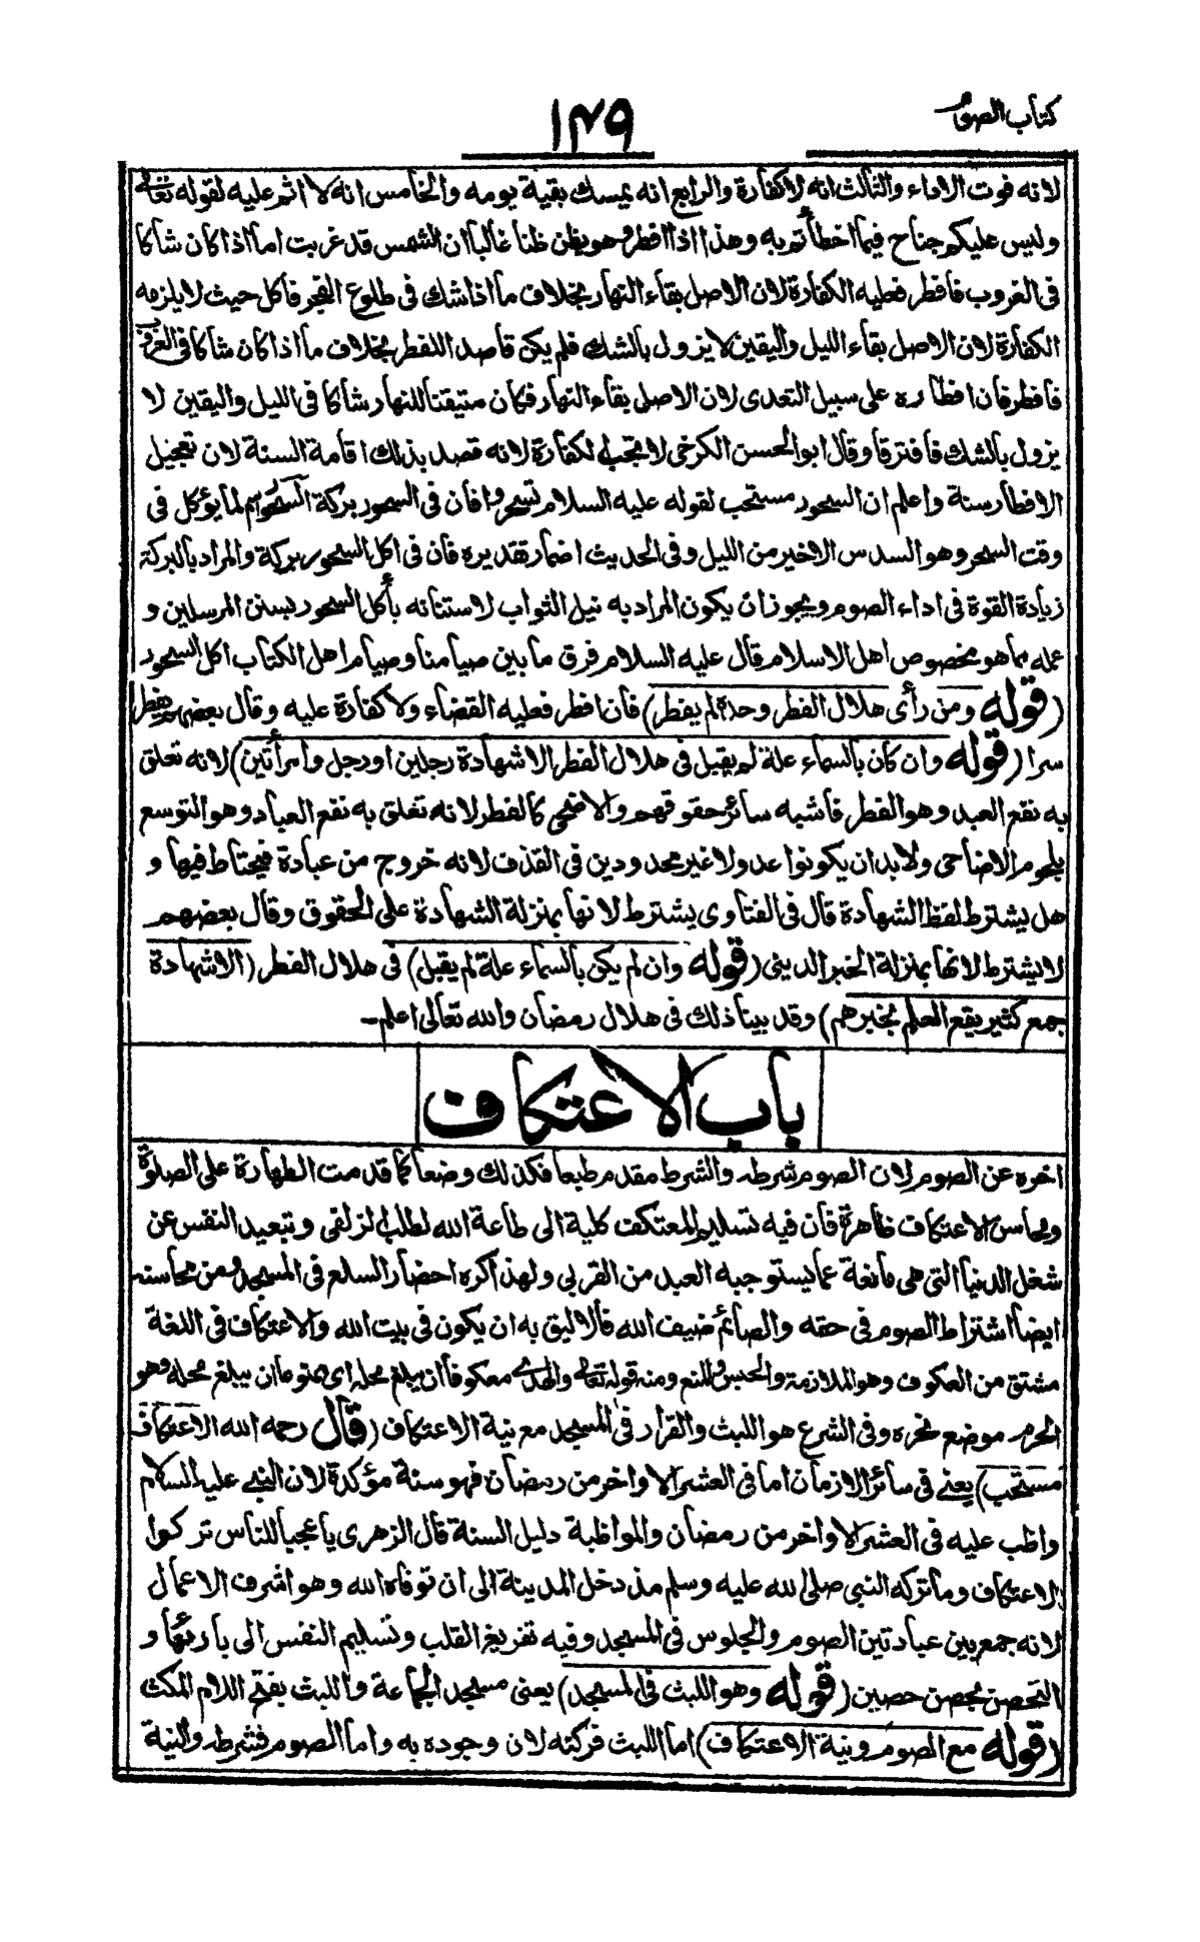 كتاب الصوم
١٤٩
لانه فوت الاداء والثالث انه لا كفارة والرابع انه يمسك بقية يومه والخامس انه لا اثم عليه لقوله تعالى
وليس عليكم جناح فيما اخطأتم به وهذا اذا افطر وهو يظن ظنا غالبا ان الشمس قد غربت اما اذا كان شاكا
فى الغروب فافطر فعليه الكفارة لان الاصل بقاء النهار بخلاف ما اذا شك فى طلوع الفجر فاكل حيث لا يلزمه
الكفارة لان الاصل بقاء الليل واليقين لا يزول بالشك فلم يكن قاصدا للفطر بخلاف ما اذا كان شاكا فى الغروب
فافطر فان افطاره على سبيل التعدى لان الاصل بقاء النهار فكان متيقنا للنهار شاكا فى الليل واليقين لا
يزول بالشك فافترقا وقال ابو الحسن الكرخى لا تجب الكفارة لانه قصد بذلك اقامة السنة لان تعجيل
الافطار سنة واعلم ان السحور مستحب لقوله عليه السلام تسحروا فان فى السحور بركة السحور اسم لما يؤكل فى
وقت السحر وهو السدس الاخير من الليل وفى الحديث اضمار تقديره فان فى اكل السحور بركة والمراد بالبركة
زيادة القوة فى اداء الصوم ويجوز ان يكون المراد به نيل الثواب لاستنانه بأكل السحور بسنن المرسلين و
عمله بما هو مخصوص اهل الاسلام قال عليه السلام فرق ما بين صيامنا وصيام اهل الكتاب اكل السحور
(قوله ومن رأى هلال الفطر وحده لم يفطر) فان افطر فعليه القضاء ولا كفارة عليه وقال بعضهم يفطر
سرا (قوله وان كان بالسماء علة لم يقبل فى هلال الفطر الا شهادة رجلين او رجل وامرأتين) لانه تعلق
به نفع العبد وهو الفطر فاشبه سائر حقوقهم والاضحى كالفطر لانه تعلق به نفع العباد وهو التوسع
بلحوم الاضاحى ولا بد ان يكونوا عدولا غير محدودين فى القذف لانه خروج من عبادة فيحتاط فيها و
هل يشترط لفظ الشهادة قال فى الفتاوى يشترط لانها بمنزلة الشهادة على الحقوق وقال بعضهم
لا يشترط لانها بمنزلة الخبر الدينى (قوله وان لم يكن بالسماء علة لم يقبل) فى هلال الفطر (الا شهادة
جمع كثير يقع العلم بخبرهم) وقد بينا ذلك فى هلال رمضان والله تعالى اعلم۔
باب الاعتكاف
اخره عن الصوم لان الصوم شرطه والشرط مقدم طبعا فكذلك وضعا كما قدمت الطهارة على الصلوة
ومحاسن الاعتكاف ظاهرة فان فيه تسليم المعتكف كلية الى طاعة الله لطلب الزلفى وتبعيد النفس عن
شغل الدنيا التى هى مانعة عما يستوجبه العبد من القربى ولهذا كره احضار السلع فى المسجد ومن محاسنه
ايضا اشتراط الصوم فى حقه والصائم ضيف الله فالاليق به ان يكون فى بيت الله والاعتكاف فى اللغة
مشتق من العكوف وهو الملازمة والحبس والمنع ومنه قوله تعالى والهدى معكوفا ان يبلغ محله اى ممنوعا ان يبلغ محله وهو
الحرم موضع نحره وفى الشرع هو اللبث والقرار فى المسجد مع نية الاعتكاف (قال رحمه الله الاعتكاف
مستحب) يعنى فى سائر الازمان اما فى العشر الاواخر من رمضان فهو سنة مؤكدة لان النبى عليه السلام
واظب عليه فى العشر الاواخر من رمضان والمواظبة دليل السنة قال الزهرى يا عجبا للناس تركوا
الاعتكاف وما تركه النبى صلى الله عليه وسلم مذ دخل المدينة الى ان توفاه الله وهو اشرف الاعمال
لانه جمع بين عبادتين الصوم والجلوس فى المسجد وفيه تفريغ القلب وتسليم النفس الى بارئها و
التحصن بحصن حصين (قوله وهو اللبث فى المسجد) يعنى مسجد الجماعة واللبث بفتح اللام المكث
(قوله مع الصوم ونية الاعتكاف) اما اللبث فركنه لان وجوده به واما الصوم فشرطه والنية